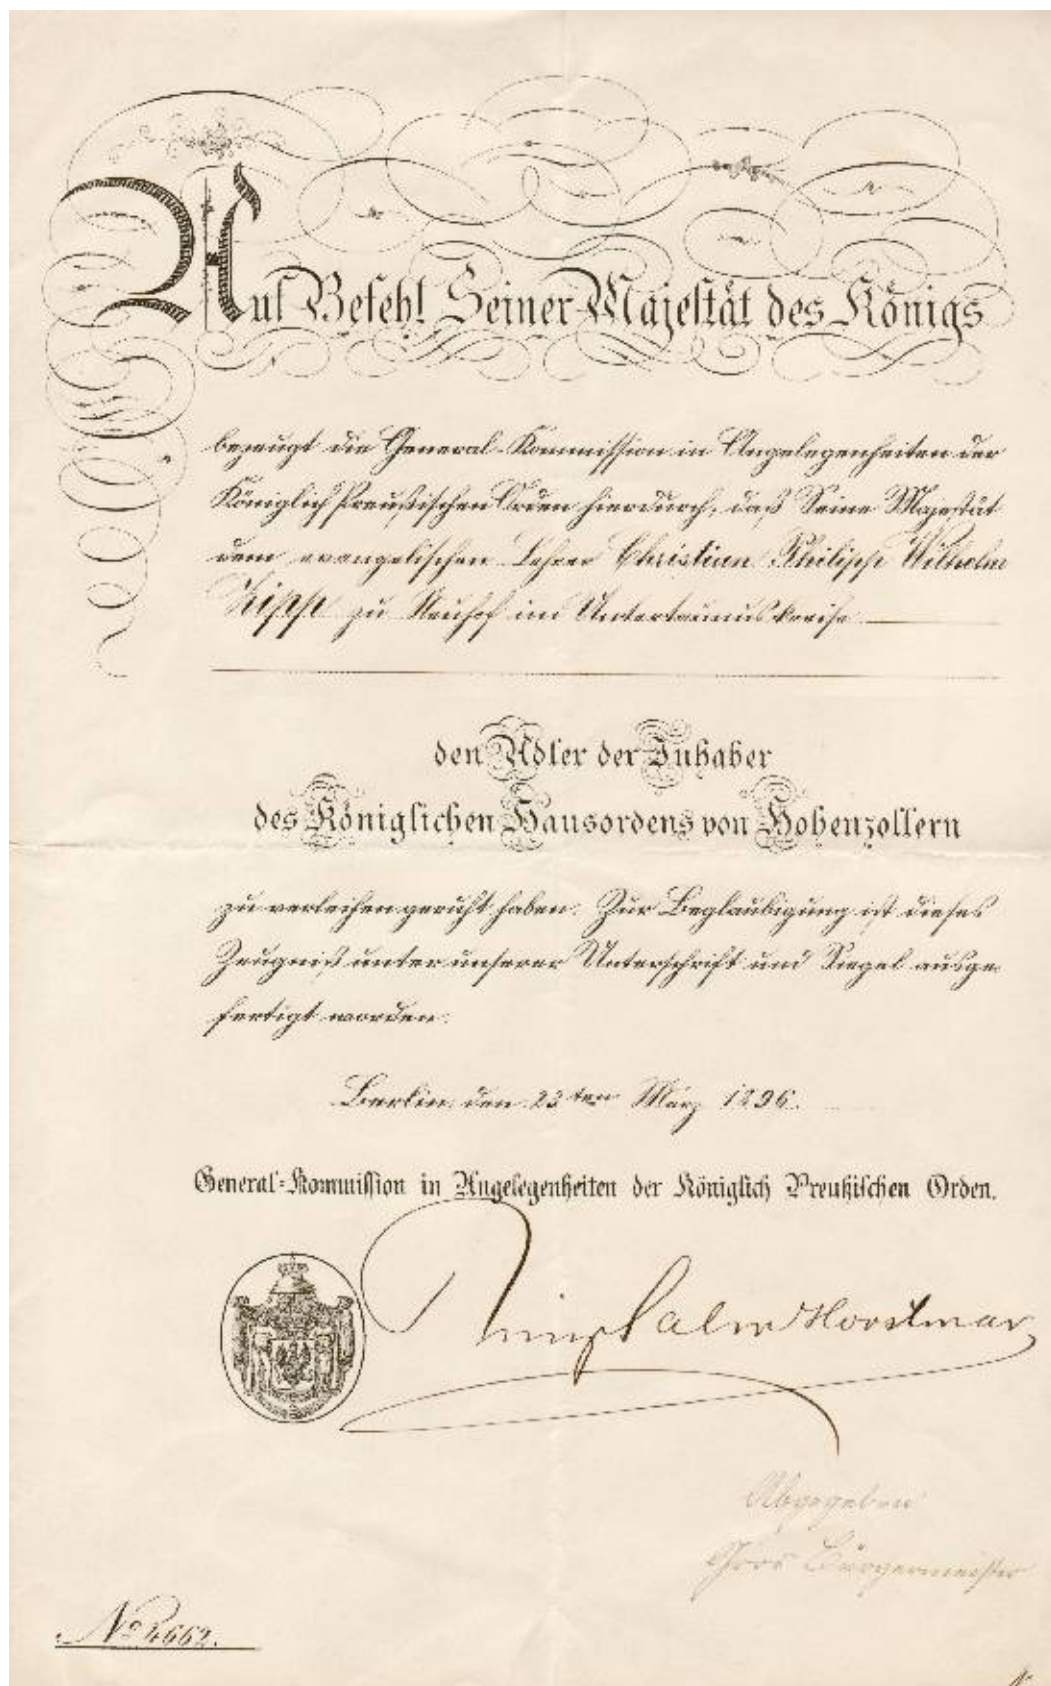 Auf Befehl Seiner Majestät des Königs
bezeugt die General-Kommission in Angelegenheiten der
Königlich Preußischen Orden hierdurch, daß Seine Majestät
dem evangelischen Lehrer Christian Philipp Wilhelm
Zipp zu Neuhof im Untertaunuskreise
den Adler der Inhaber
des Königlichen Hausordens von Hohenzollern
zu verleihen geruht haben. Zur Beglaubigung ist dieses
Zeugniß unter unserer Unterschrift und Siegel ausge-
fertigt worden.
Berlin, den 23ten März 1896.
General-Kommission in Angelegenheiten der Königlich Preußischen Orden.
Salm Horstmar
Abgegeben
Bürgermeister
No 4662.